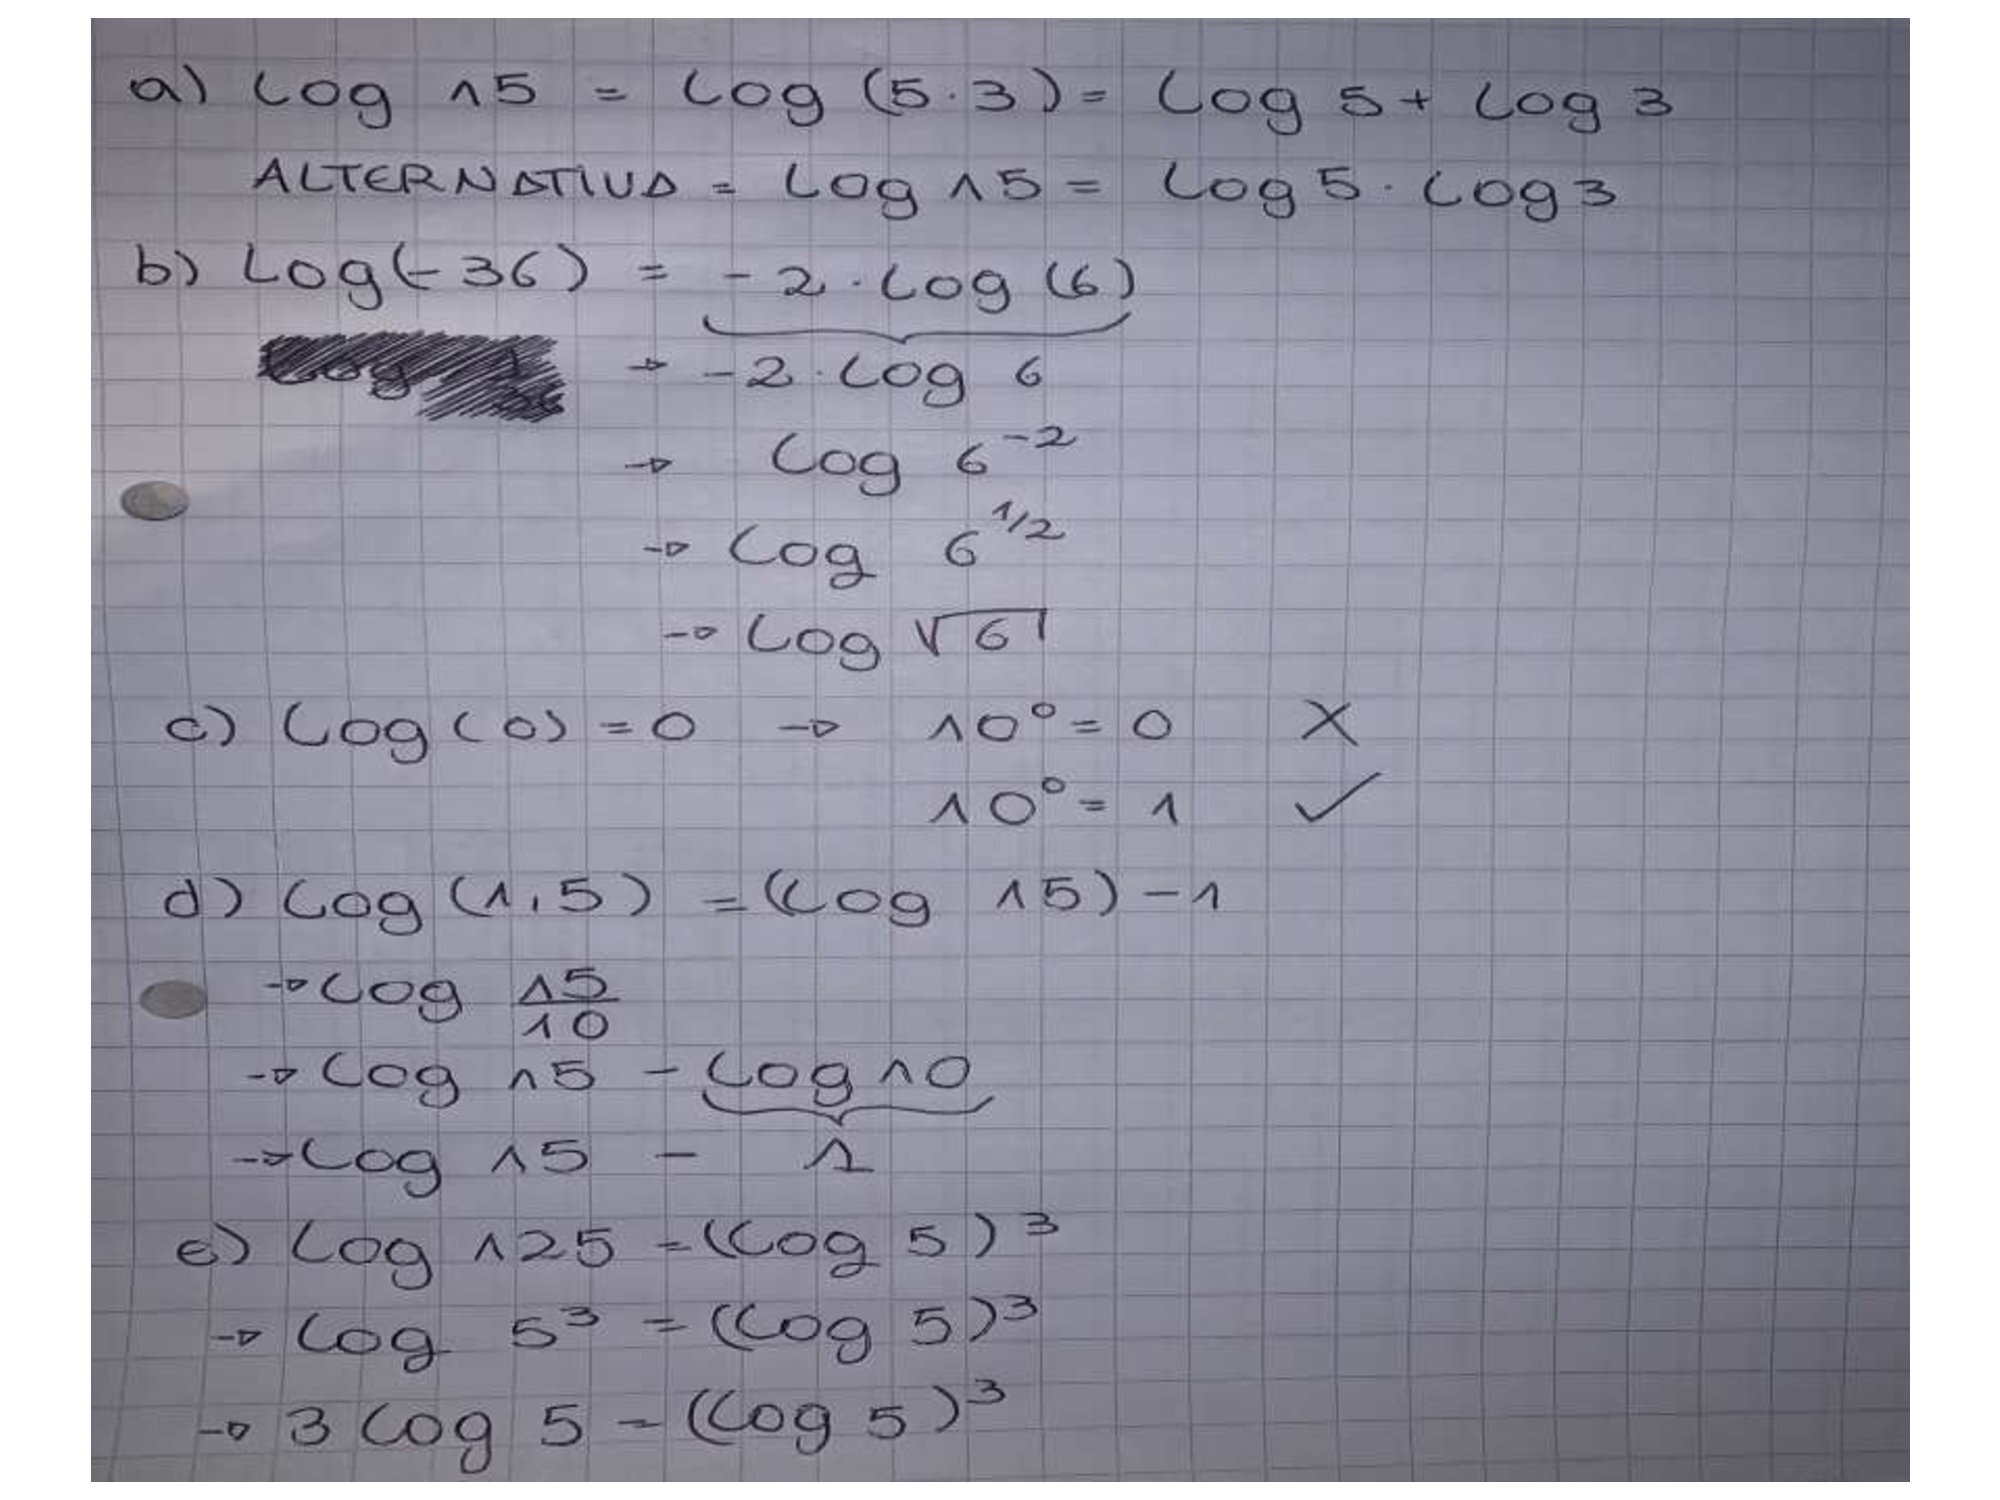 a) Log 15 = Log (5·3) = Log 5 + Log 3
ALTERNATIVA = Log 15 = Log 5 · Log 3
b) Log(-36) = -2 · Log (6)
→ -2 · Log 6
→ Log 6⁻²
→ Log 6^1/2
→ Log √6
c) Log (0) = 0 → 10⁰ = 0 X
10⁰ = 1 ✓
d) Log (1,5) = (Log 15) - 1
→ Log 15/10
→ Log 15 - Log 10
→ Log 15 - 1
e) Log 125 = (Log 5)³
→ Log 5³ = (Log 5)³
→ 3 Log 5 = (Log 5)³